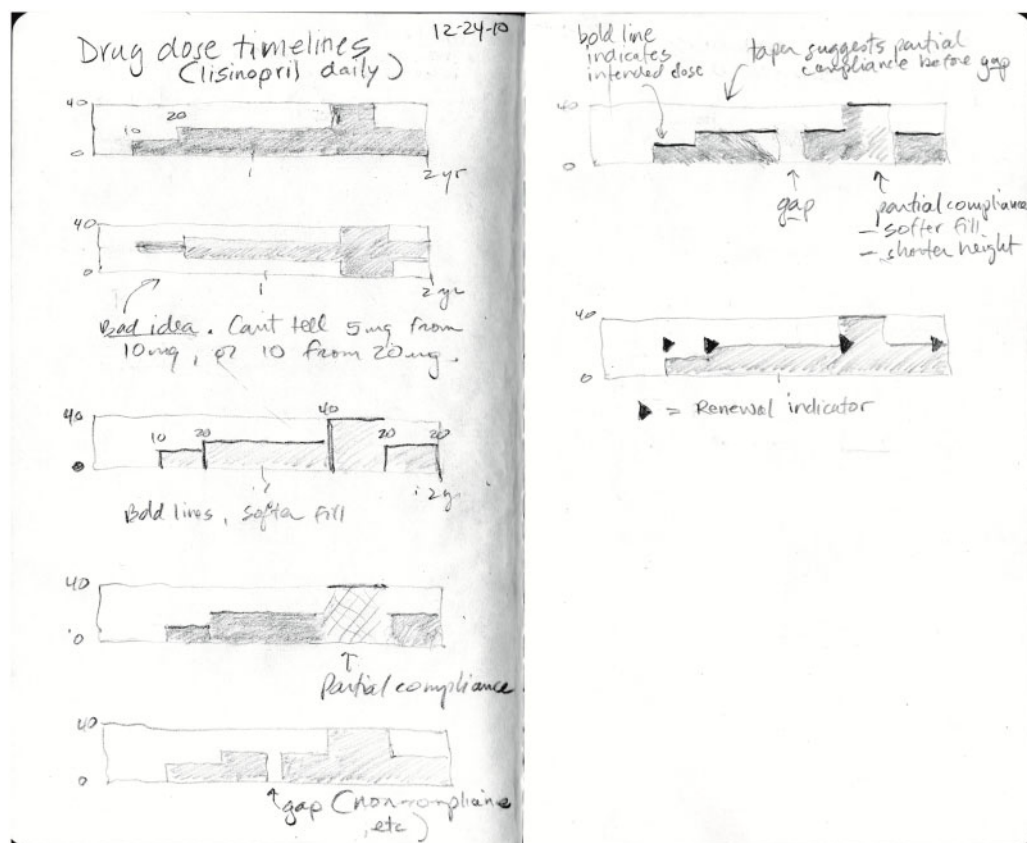 12-24-10
Drug dose timelines
(lisinopril daily)
40
20
10
0
1
2 yr
40
0
1
2 yr
Bad idea. Can't tell 5mg from
10mg, or 10 from 20mg.
40
40
10
20
20
20
2 yr
Bold lines, softer fill
40
0
↑
Partial compliance
40
0
↑ gap (non-compliance,
etc)
bold line
indicates
intended dose
taper suggests partial
compliance before gap
40
0
↑
gap
↑
partial compliance
– softer fill
– shorter height
40
0
▶ = Renewal indicator